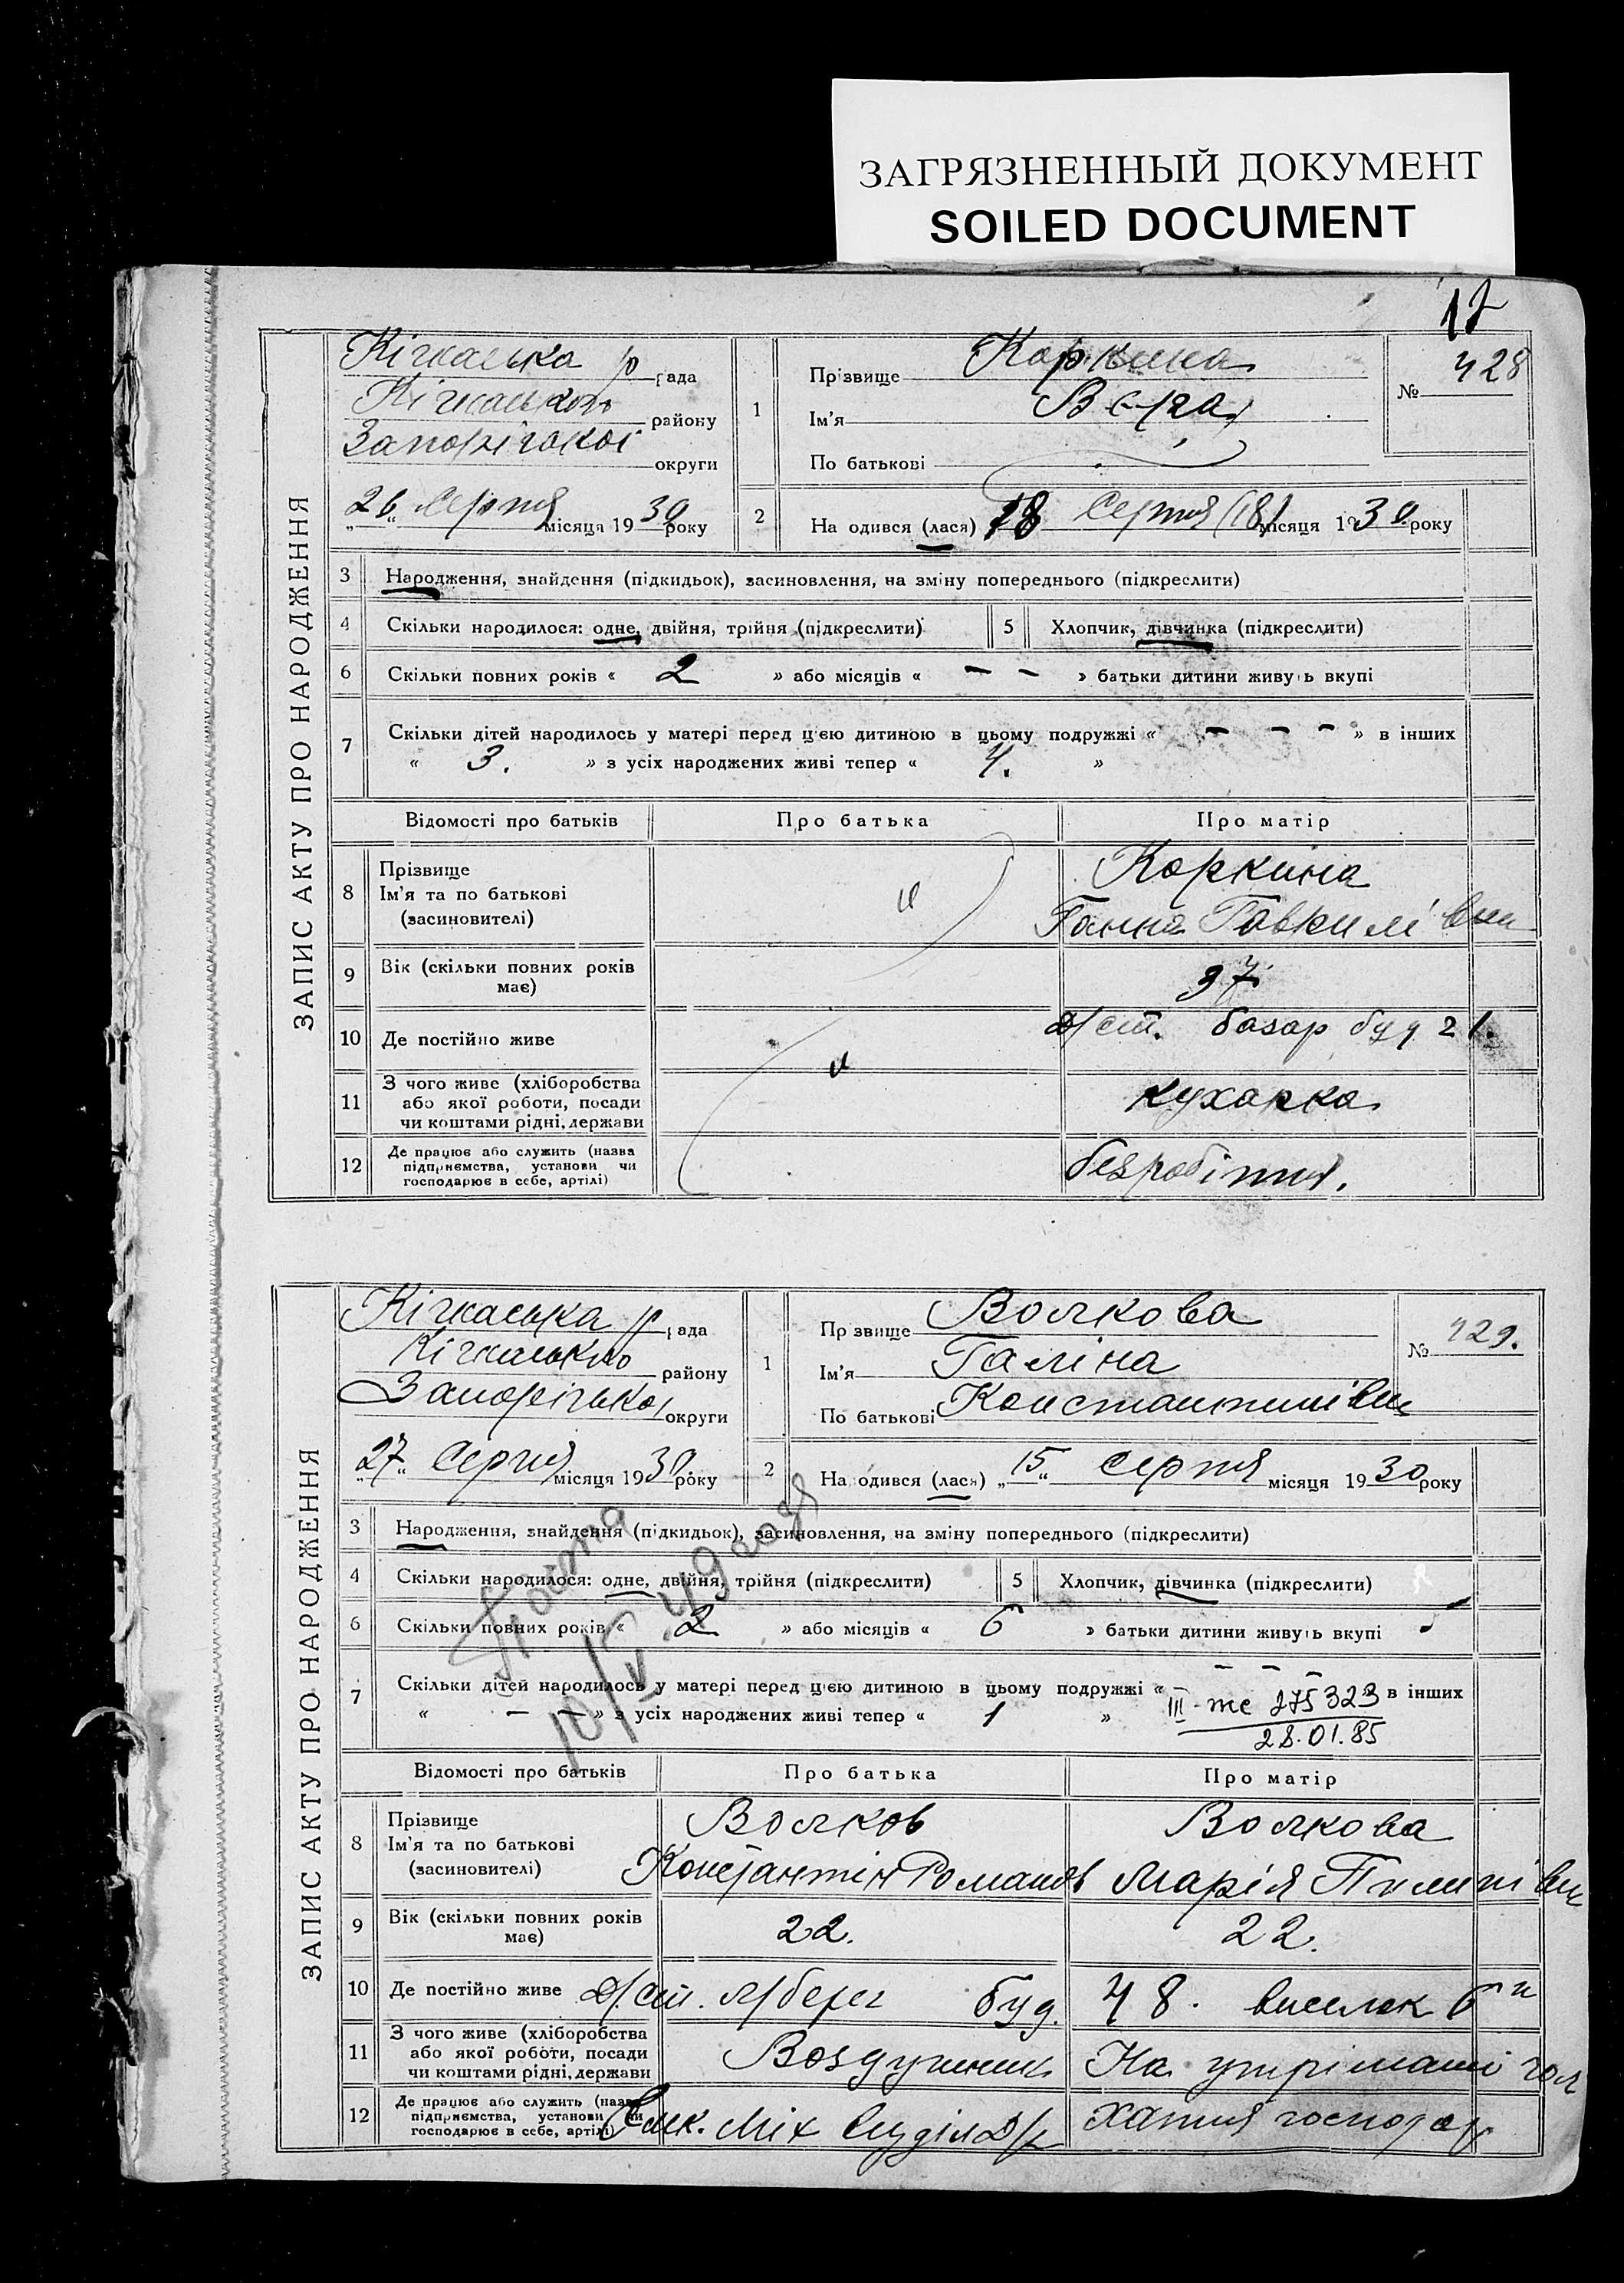 ЗАГРЯЗНЕННЫЙ ДОКУМЕНТ
SOILED DOCUMENT
17
ЗАПИС АКТУ ПРО НАРОДЖЕННЯ
Кічкаська р рада
Кічкаського району
Запорізької округи
„26“ Серпня місяця 1930 року
1
Прізвище Коркина
Ім'я Вера
По батькові
№ 428
2
На одився (лася) 18 Серпня (18) місяця 1930 року
3 Народження, знайдення (підкидьок), засиновлення, на зміну попереднього (підкреслити)
4 Скільки народилося: одне, двійня, трійня (підкреслити) 5 Хлопчик, дівчинка (підкреслити)
6 Скільки повних років « 2 » або місяців « – – » батьки дитини живуть вкупі
7 Скільки дітей народилось у матері перед цією дитиною в цьому подружжі « – – – » в інших
« 3. » з усіх народжених живі тепер « 4. »
Відомості про батьків Про батька Про матір
8 Прізвище
Ім'я та по батькові
(засиновителі)
Коркина
Ганна Гаврилівна
9 Вік (скільки повних років
має)
37
10 Де постійно живе
д/ст. базар буд 21.
11 З чого живе (хліборобства
або якої роботи, посади
чи коштами рідні, держави
кухарка
12 Де працює або служить (назва
підприємства, установи чи
господарює в себе, артілі)
безробітня.
ЗАПИС АКТУ ПРО НАРОДЖЕННЯ
Кічкаська р рада
Кічкаського району
Запорізької округи
„27“ Серпня місяця 1930 року
1
Пр звище Волкова
Ім'я Галіна
По батькові Константинівна
№ 429.
2
На одився (лася) „15“ серпня місяця 1930 року
3 Народження, знайдення (підкидьок), засиновлення, на зміну попереднього (підкреслити)
4 Скільки народилося: одне, двійня, трійня (підкреслити) 5 Хлопчик, дівчинка (підкреслити)
6 Скільки повних років « 2 » або місяців « 6 » батьки дитини живуть вкупі
7 Скільки дітей народилось у матері перед цією дитиною в цьому подружжі « – – – » в інших
« – – » з усіх народжених живі тепер « 1 »
III-те 275323
28.01.85
10/V
Відомості про батьків Про батька Про матір
8 Прізвище
Ім'я та по батькові
(засиновителі)
Волков
Константін Романов
Волкова
Марія Пилипівна
9 Вік (скільки повних років
має)
22.
22.
10 Де постійно живе
д/ст. л/берег буд. 48. виселок 6
11 З чого живе (хліборобства
або якої роботи, посади
чи коштами рідні, держави
Воздушник
На утріманні чол
12 Де працює або служить (назва
підприємства, установи чи
господарює в себе, артілі)
Мех
хатня господар